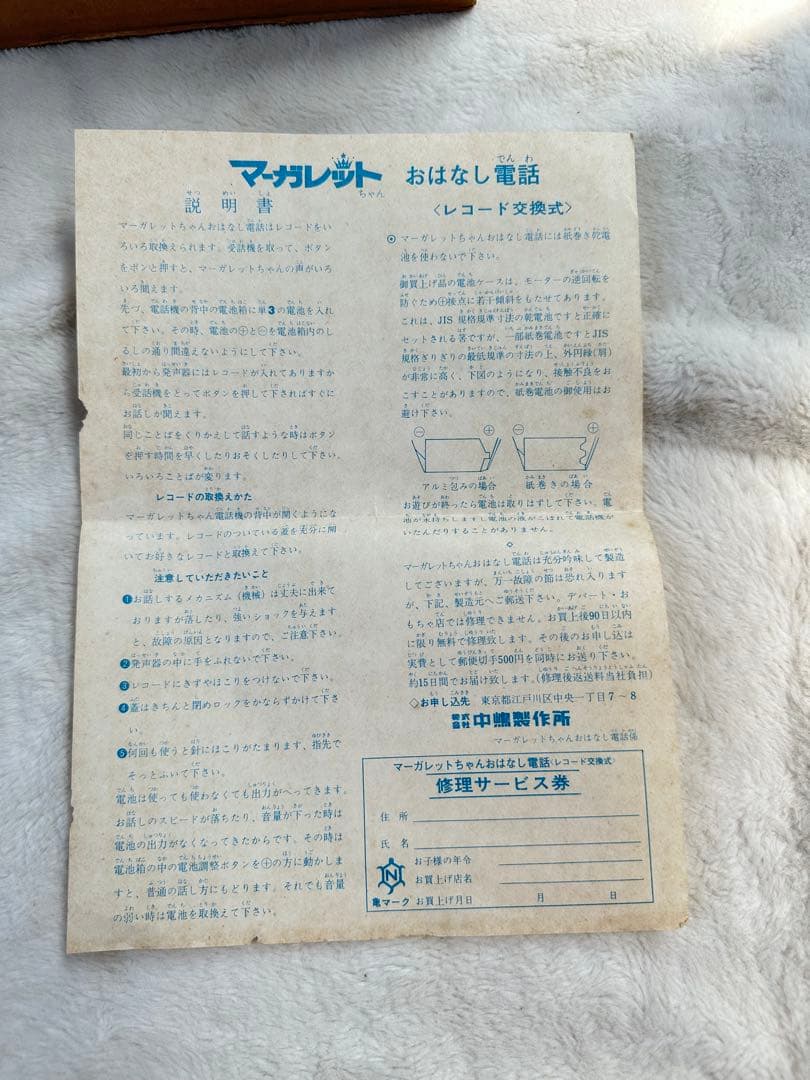 マーガレットちゃん おはなし電話
説明書
〈レコード交換式〉
マーガレットちゃんおはなし電話はレコードをい
ろいろ取換えられます。受話機を取って、ボタン
をポンと押すと、マーガレットちゃんの声がいろ
いろ聞えます。
先づ、電話機の背中の電池箱に単3の電池を入れ
て下さい。その時、電池の⊕と⊖を電池箱内のし
るしの通り間違えないようにして下さい。
最初から発声器にはレコードが入れてありますか
ら受話機をとってボタンを押して下さればすぐに
お話しが聞えます。
同じことばをくりかえして話すような時はボタン
を押す時間を早くしたりおそくしたりして下さい。
いろいろことばが変ります。
レコードの取換えかた
マーガレットちゃん電話機の背中が開くようにな
っています。レコードのついている蓋を充分に開
いてお好きなレコードと取換えて下さい。
注意していただきたいこと
❶お話しするメカニズム(機械)は丈夫に出来て
おりますが落したり、強いショックを与えます
と、故障の原因となりますので、ご注意下さい。
❷発声器の中に手をふれないで下さい。
❸レコードにきずやほこりをつけないで下さい。
❹蓋はきちんと閉めロックをかならずかけて下さ
い。
❺何回も使うと針にほこりがたまります、指先で
そっとふいて下さい。
電池は使っても使わなくても出力がへってきます。
お話しのスピードが落ちたり、音量が下った時は
電池の出力がなくなってきたからです、その時は
電池箱の中の電池調整ボタンを⊕の方に動かしま
すと、普通の話し方にもどります。それでも音量
の弱い時は電池を取換えて下さい。
◉マーガレットちゃんおはなし電話には紙巻き乾電
池を使わないで下さい。
御買上げ品の電池ケースは、モーターの逆回転を
防ぐため⊕接点に若干傾斜をもたせてあります。
これは、JIS規格規準寸法の乾電池ですと正確に
セットされる筈ですが、一部紙巻電池ですとJIS
規格ぎりぎりの最低規準の寸法の上、外円縁(肩)
が非常に高く、下図のようになり、接触不良をお
こすことがありますので、紙巻電池の御使用はお
避け下さい。
⊖ ⊕ ⊖ ⊕
アルミ包みの場合 紙巻きの場合
お遊びが終ったら電池は取りはずして下さい。電
池が永持ちしますし電池の液がこぼれて電話機が
いたんだりすることがありません。
◇
マーガレットちゃんおはなし電話は充分吟味して製造
してございますが、万一故障の節は恐れ入ります
が、下記、製造元へご郵送下さい。デパート・お
もちゃ店では修理できません。お買上後90日以内
に限り無料で修理致します。その後のお申し込は
実費として郵便切手500円を同時にお送り下さい。
約15日間でお届け致します。(修理後返送料当社負担)
◇お申し込先 東京都江戸川区中央一丁目7〜8
株式会社 中嶋製作所
マーガレットちゃんおはなし電話係
マーガレットちゃんおはなし電話〈レコード交換式〉
修理サービス券
住所
氏名
お子様の年令
お買上げ店名
N
亀マーク お買上げ月日 月 日